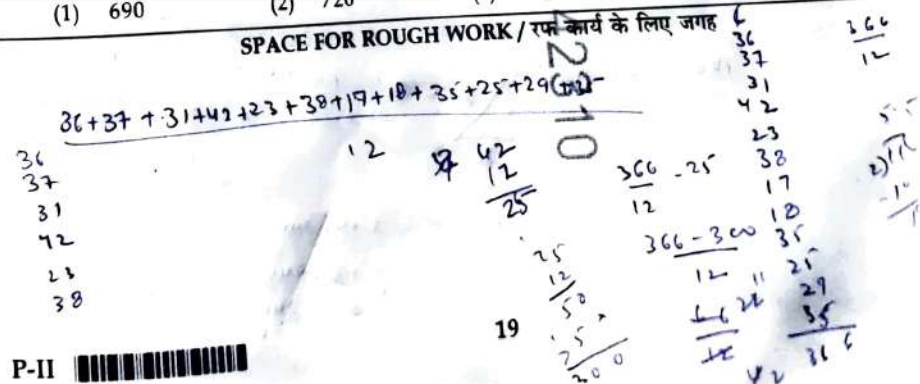 (1) 690
(2) 720
SPACE FOR ROUGH WORK / रफ कार्य के लिए जगह
36+37+31+42+23+38+17+18+35+25+29
12
36
37
31
42
23
38
42
12
25
366
12
-25
366-300
12
25
12
50
25×
300
66
12
11
6
36
37
31
42
23
38
17
18
35
25
29
35
366
366
12
42
2310
19
P-II